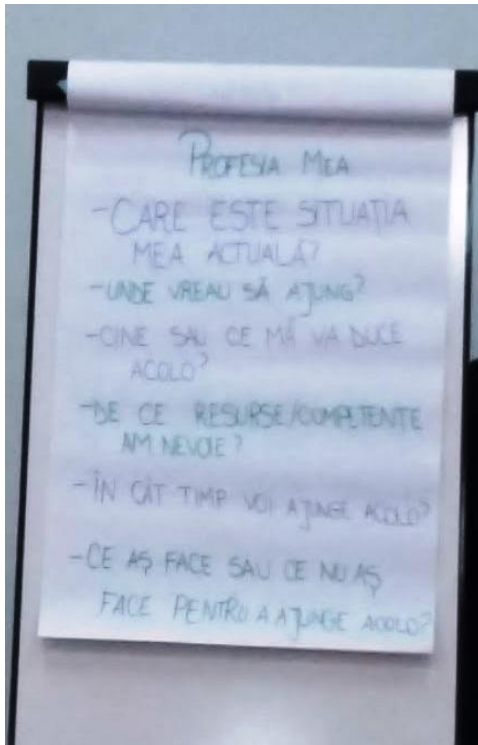 PROFESIA MEA
-CARE ESTE SITUAȚIA
MEA ACTUALĂ?
-UNDE VREAU SĂ AJUNG?
-CINE SAU CE MĂ VA DUCE
ACOLO?
-DE CE RESURSE/COMPETENTE
AM NEVOIE?
-ÎN CÂT TIMP VOI AJUNGE ACOLO?
-CE AȘ FACE SAU CE NU AȘ
FACE PENTRU A AJUNGE ACOLO?